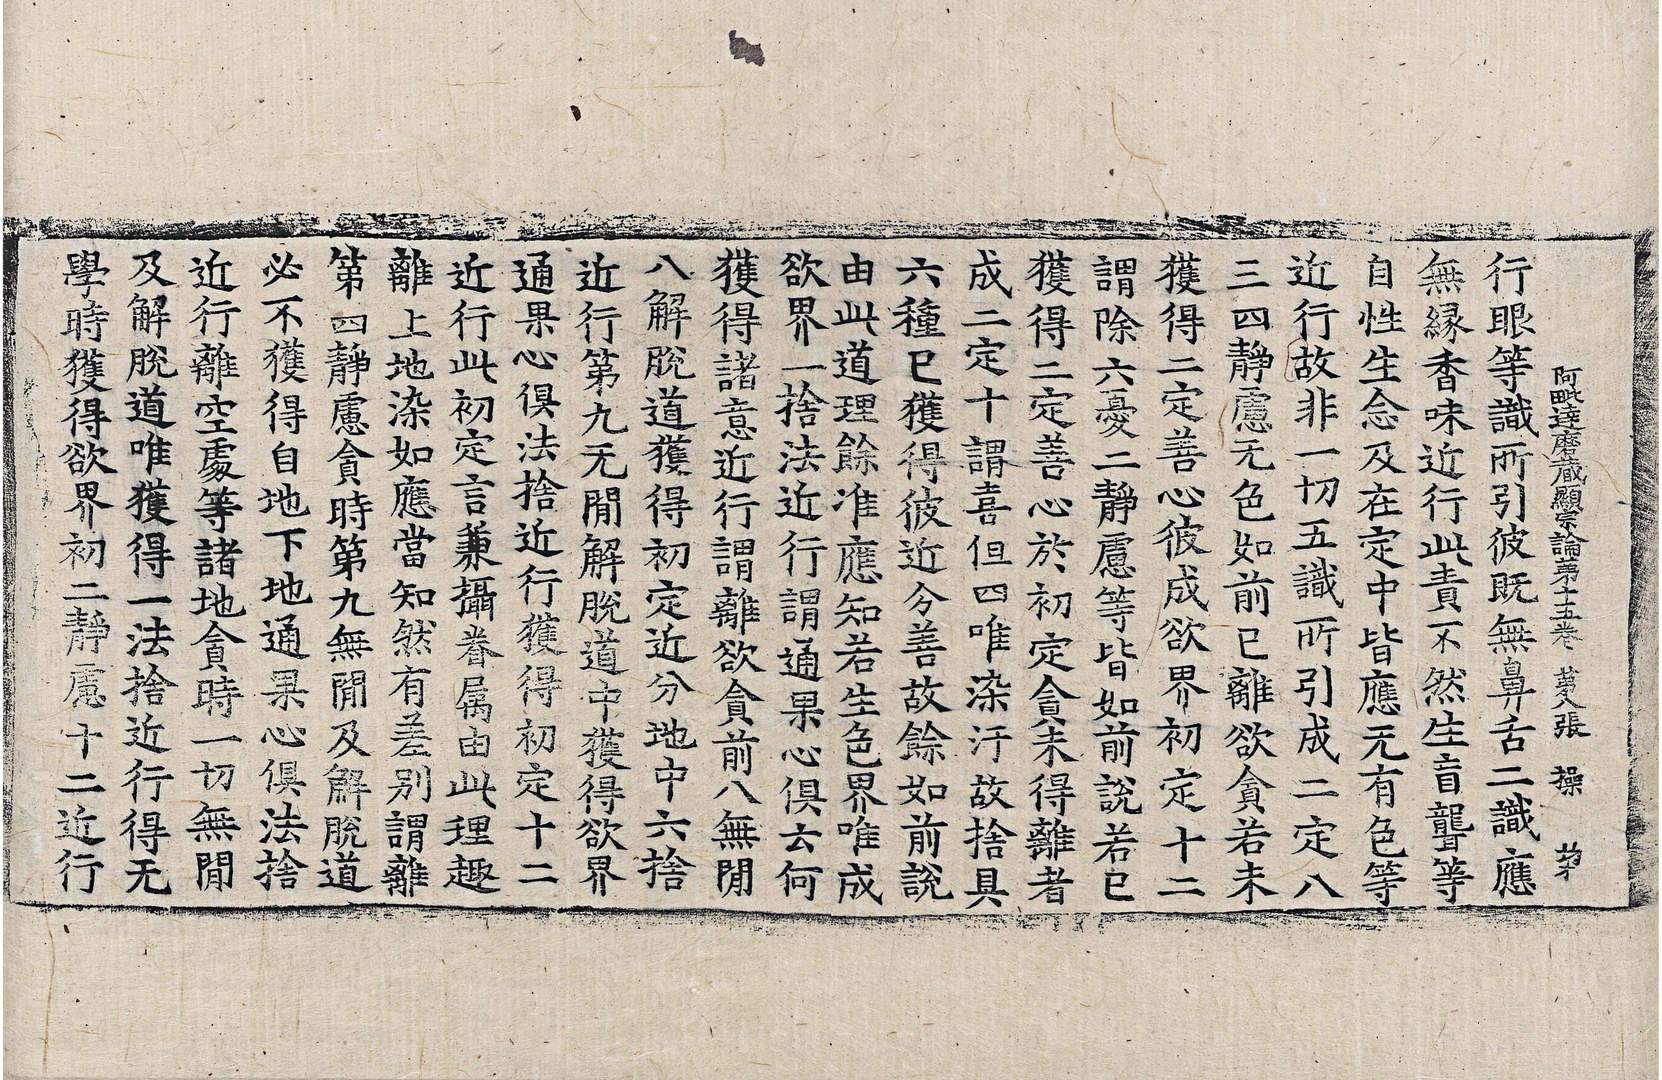 阿毗達磨藏顯宗論第十五卷 第八張 操 弟
行眼等識所引彼既無鼻舌二識應
無緣香味近行此責不然生盲聾等
自性生念及在定中皆應无有色等
近行故非一切五識所引成二定八
三四靜慮无色如前已離欲貪若未
獲得二定善心彼成欲界初定十二
謂除六憂二靜慮等皆如前說若已
獲得二定善心於初定貪未得離者
成二定十謂喜但四唯染汙故捨具
六種已獲得彼近分善故餘如前說
由此道理餘准應知若生色界唯成
欲界一捨法近行謂通果心俱云何
獲得諸意近行謂離欲貪前八無閒
八解脫道獲得初定近分地中六捨
近行第九无閒解脫道中獲得欲界
通果心俱法捨近行獲得初定十二
近行此初定言兼攝眷属由此理趣
離上地染如應當知然有差別謂離
第四靜慮貪時第九無閒及解脫道
必不獲得自地下地通果心俱法捨
近行離空處等諸地貪時一切無閒
及解脫道唯獲得一法捨近行得无
學時獲得欲界初二靜慮十二近行